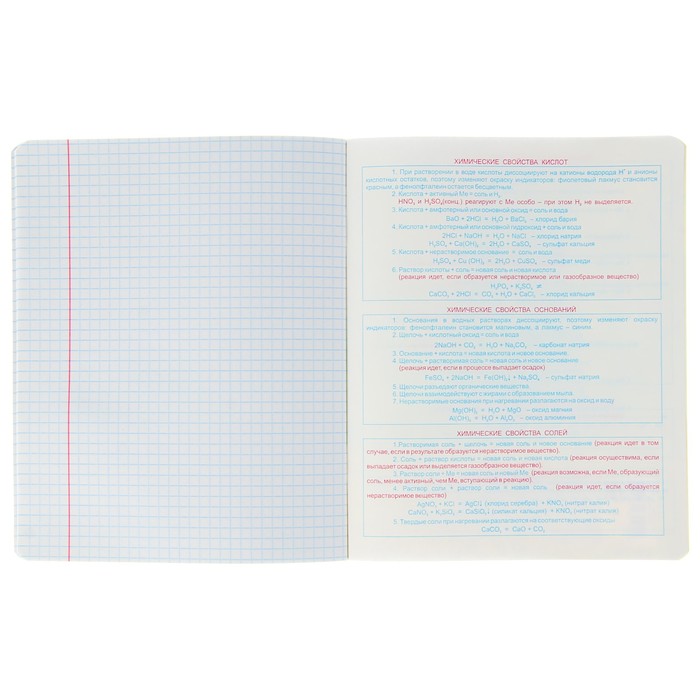 ХИМИЧЕСКИЕ СВОЙСТВА КИСЛОТ
1. При растворении в воде кислоты диссоциируют на катионы водорода H⁺ и анионы
кислотных остатков, поэтому изменяют окраску индикаторов: фиолетовый лакмус становится
красным, а фенолфталеин остается бесцветным.
2. Кислота + активный Ме = соль и H₂
HNO₃ и H₂SO₄(конц.) реагируют с Ме особо – при этом H₂ не выделяется.
3. Кислота + амфотерный или основной оксид = соль и вода
BaO + 2HCl = H₂O + BaCl₂ – хлорид бария
4. Кислота + амфотерный или основной гидроксид = соль и вода
2HCl + NaOH = H₂O + NaCl – хлорид натрия
H₂SO₄ + Ca(OH)₂ = 2H₂O + CaSO₄ – сульфат кальция
5. Кислота + нерастворимое основание = соль и вода
H₂SO₄ + Cu (OH)₂ = 2H₂O + CuSO₄ – сульфат меди
6. Раствор кислоты + соль = новая соль и новая кислота
(реакция идет, если образуется нерастворимое или газообразное вещество)
H₃PO₄ + K₂SO₄ ≠
CaCO₃ + 2HCl = CO₂ + H₂O + CaCl₂ – хлорид кальция
ХИМИЧЕСКИЕ СВОЙСТВА ОСНОВАНИЙ
1. Основания в водных растворах диссоциируют, поэтому изменяют окраску
индикаторов: фенолфталеин становится малиновым, а лакмус – синим
2. Щелочь + кислотный оксид = соль и вода
2NaOH + CO₂ = H₂O + Na₂CO₃ – карбонат натрия
3. Основание + кислота = новая кислота и новое основание.
4. Щелочь + растворимая соль = новая соль и новое основание
(реакция идет, если в процессе выпадает осадок)
FeSO₄ + 2NaOH = Fe(OH)₂↓ + Na₂SO₄ – сульфат натрия
5. Щелочи разъедают органические вещества.
6. Щелочи взаимодействуют с жирами с образованием мыла.
7. Нерастворимые основания при нагревании разлагаются на оксид и воду
Mg(OH)₂ = H₂O + MgO – оксид магния
Al(OH)₃ = H₂O + Al₂O₃ – оксид алюминия
ХИМИЧЕСКИЕ СВОЙСТВА СОЛЕЙ
1. Растворимая соль + щелочь = новая соль и новое основание (реакция идет в том
случае, если в результате образуется нерастворимое вещество).
2. Соль + раствор кислоты = новая соль и новая кислота (реакция осуществима, если
выпадает осадок или выделяется газообразное вещество).
3. Раствор соли + Ме = новая соль и новый Ме (реакция возможна, если Ме, образующий
соль, менее активный, чем Ме, вступающий в реакцию).
4. Раствор соли + раствор соли = новая соль. (реакция идет, если образуется
нерастворимое вещество)
AgNO₃ + KCl = AgCl↓ (хлорид серебра) + KNO₃ (нитрат калия)
CaNO₃ + K₂SiO₃ = CaSiO₃↓ (силикат кальция) + KNO₃ (нитрат калия)
5. Твердые соли при нагревании разлагаются на соответствующие оксиды
CaCO₃ = CaO + CO₂